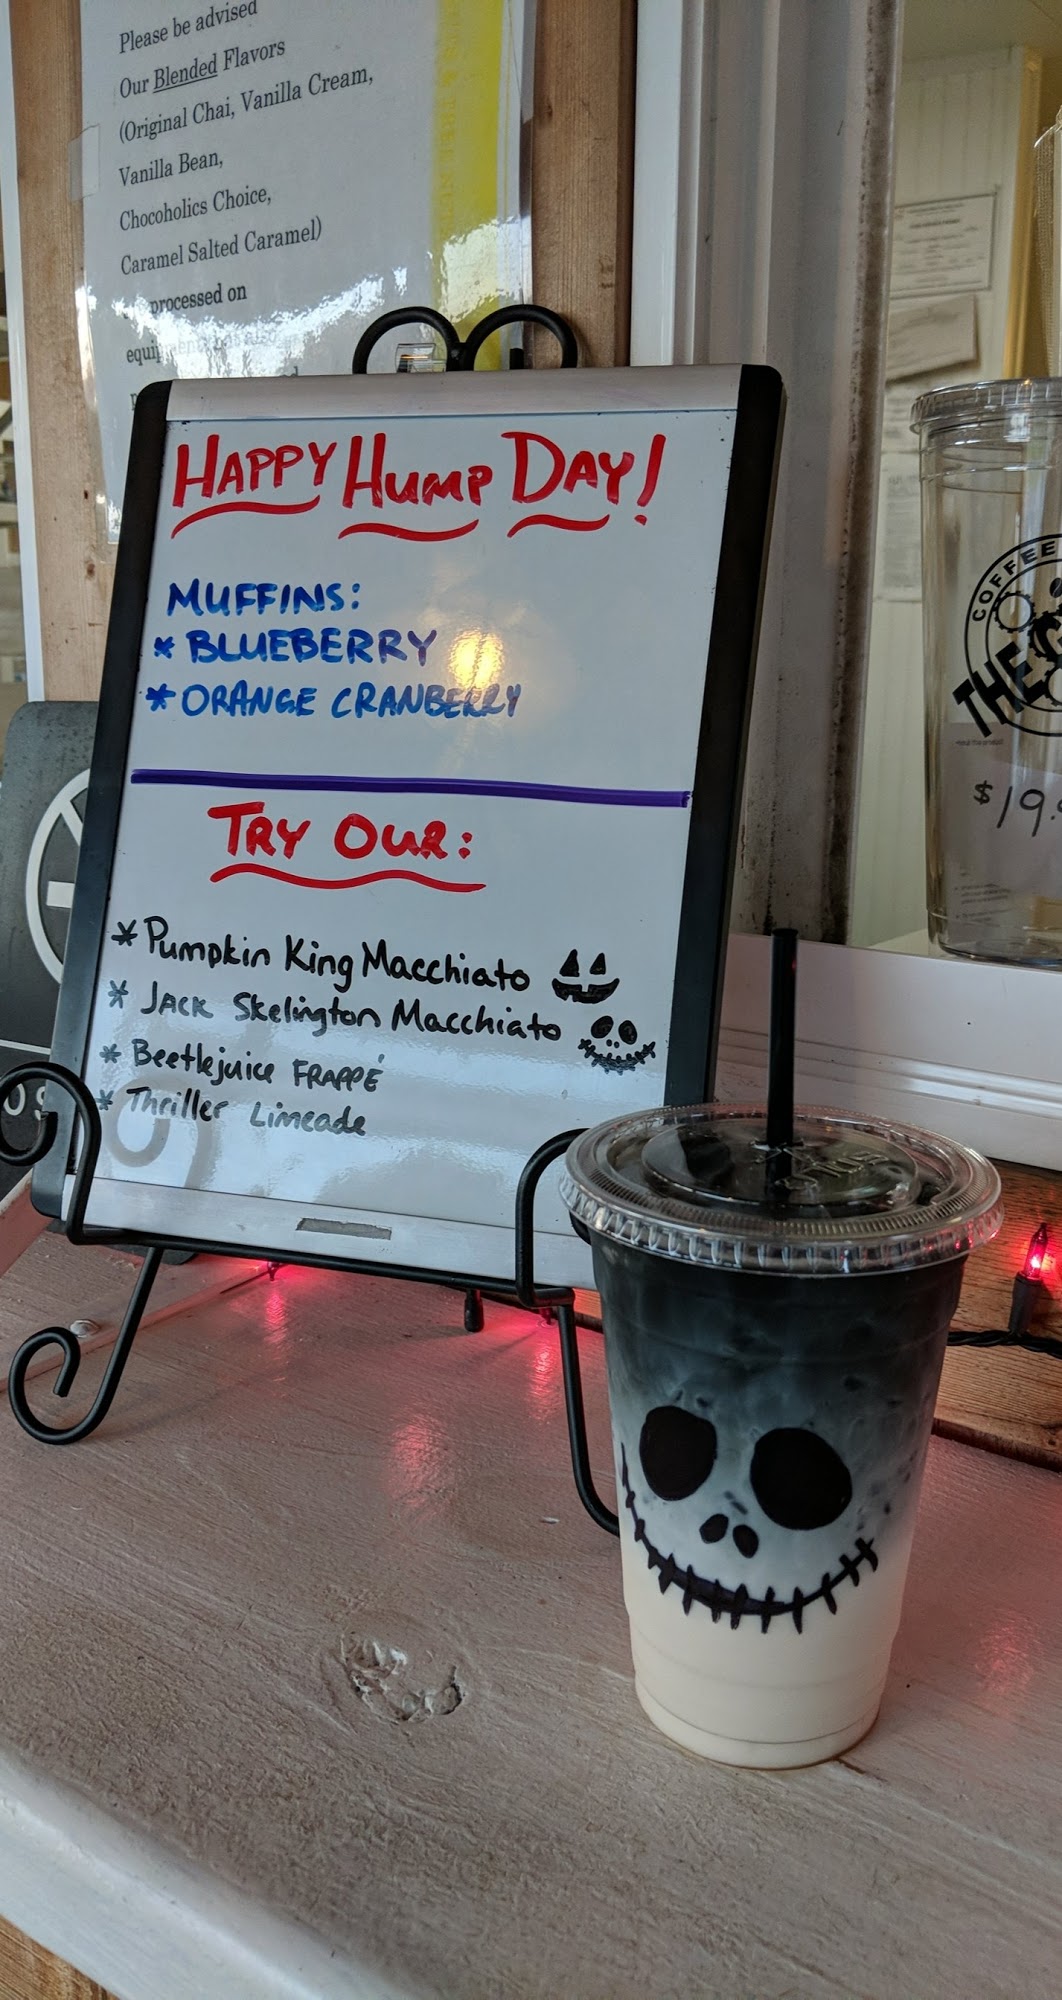 Please be advised
Our Blended Flavors
(Original Chai, Vanilla Cream,
Vanilla Bean,
Chocoholics Choice,
Caramel Salted Caramel)
processed on
HAPPY HUMP DAY!
MUFFINS:
* BLUEBERRY
* ORANGE CRANBERRY
TRY OUR:
* Pumpkin King Macchiato
* JACK Skelington Macchiato
* Beetlejuice FRAPPÉ
* Thriller Limeade
COFFEE
THE
$19.